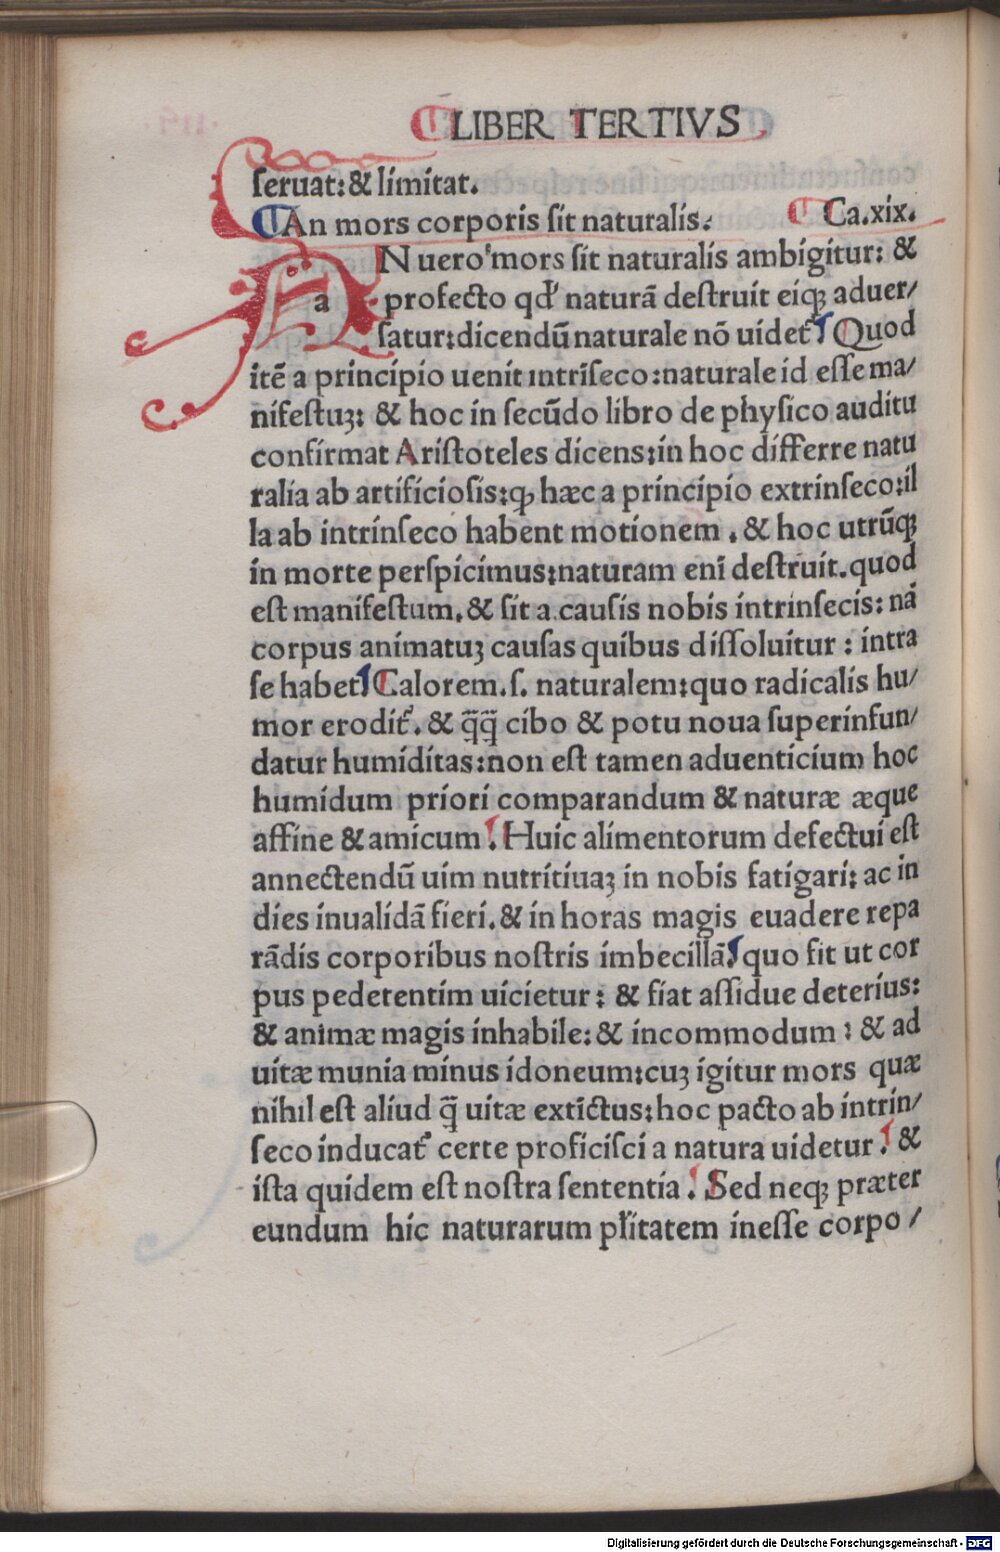 LIBER TERTIVS
ſeruat: & limitat.
An mors corporis ſit naturalis. Ca.xix.
aN uero mors ſit naturalis ambigitur: &
profecto qđ naturã deſtruit eiqꝫ aduer/
ſatur: dicendũ naturale nõ uidet᷑ Quod
itẽ a principio uenit intrĩſeco: naturale id eſſe ma/
nifeſtuꝫ: & hoc in ſecũdo libro de phyſico auditu
confirmat Ariſtoteles dicens: in hoc differre natu
ralia ab artificioſis: ꝙ hæc a principio extrinſeco: il
la ab intrinſeco habent motionem. & hoc utrũqꝫ
in morte perſpicimus: naturam enĩ deſtruit. quod
eſt manifeſtum. & ſit a cauſis nobis intrinſecis: nã
corpus animatuꝫ cauſas quibus diſſoluitur: intra
ſe habet Calorem .ſ. naturalem: quo radicalis hu/
mor erodit᷑. & q̃q̃ cibo & potu noua ſuperinfun/
datur humiditas: non eſt tamen aduenticium hoc
humidum priori comparandum & naturæ æque
affine & amicum. Huic alimentorum defectui eſt
annectendũ uim nutritiuaꝫ in nobis fatigari: ac in
dies inualidã fieri. & in horas magis euadere repa
rãdis corporibus noſtris imbecillã. quo fit ut cor
pus pedetentim uicietur: & fiat aſſidue deterius:
& animæ magis inhabile: & incommodum: & ad
uitæ munia minus idoneum: cuꝫ igitur mors quæ
nihil eſt aliud q̃ uitæ extĩctus: hoc pacto ab intrin/
ſeco inducat᷑ certe proficiſci a natura uidetur. &
iſta quidem eſt noſtra ſententia. Sed neqꝫ præter
eundum hic naturarum pꝉitatem ineſſe corpo/
Digitalisierung gefördert durch die Deutsche Forschungsgemeinschaft - DFG